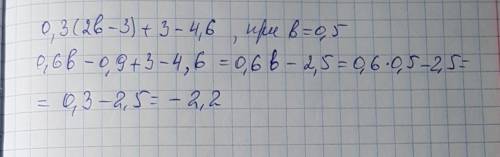 0,3(2в-3)+3-4,6 , при в=0,5
0,6в-0,9+3-4,6=0,6в-2,5=0,6·0,5-2,5=
=0,3-2,5=-2,2